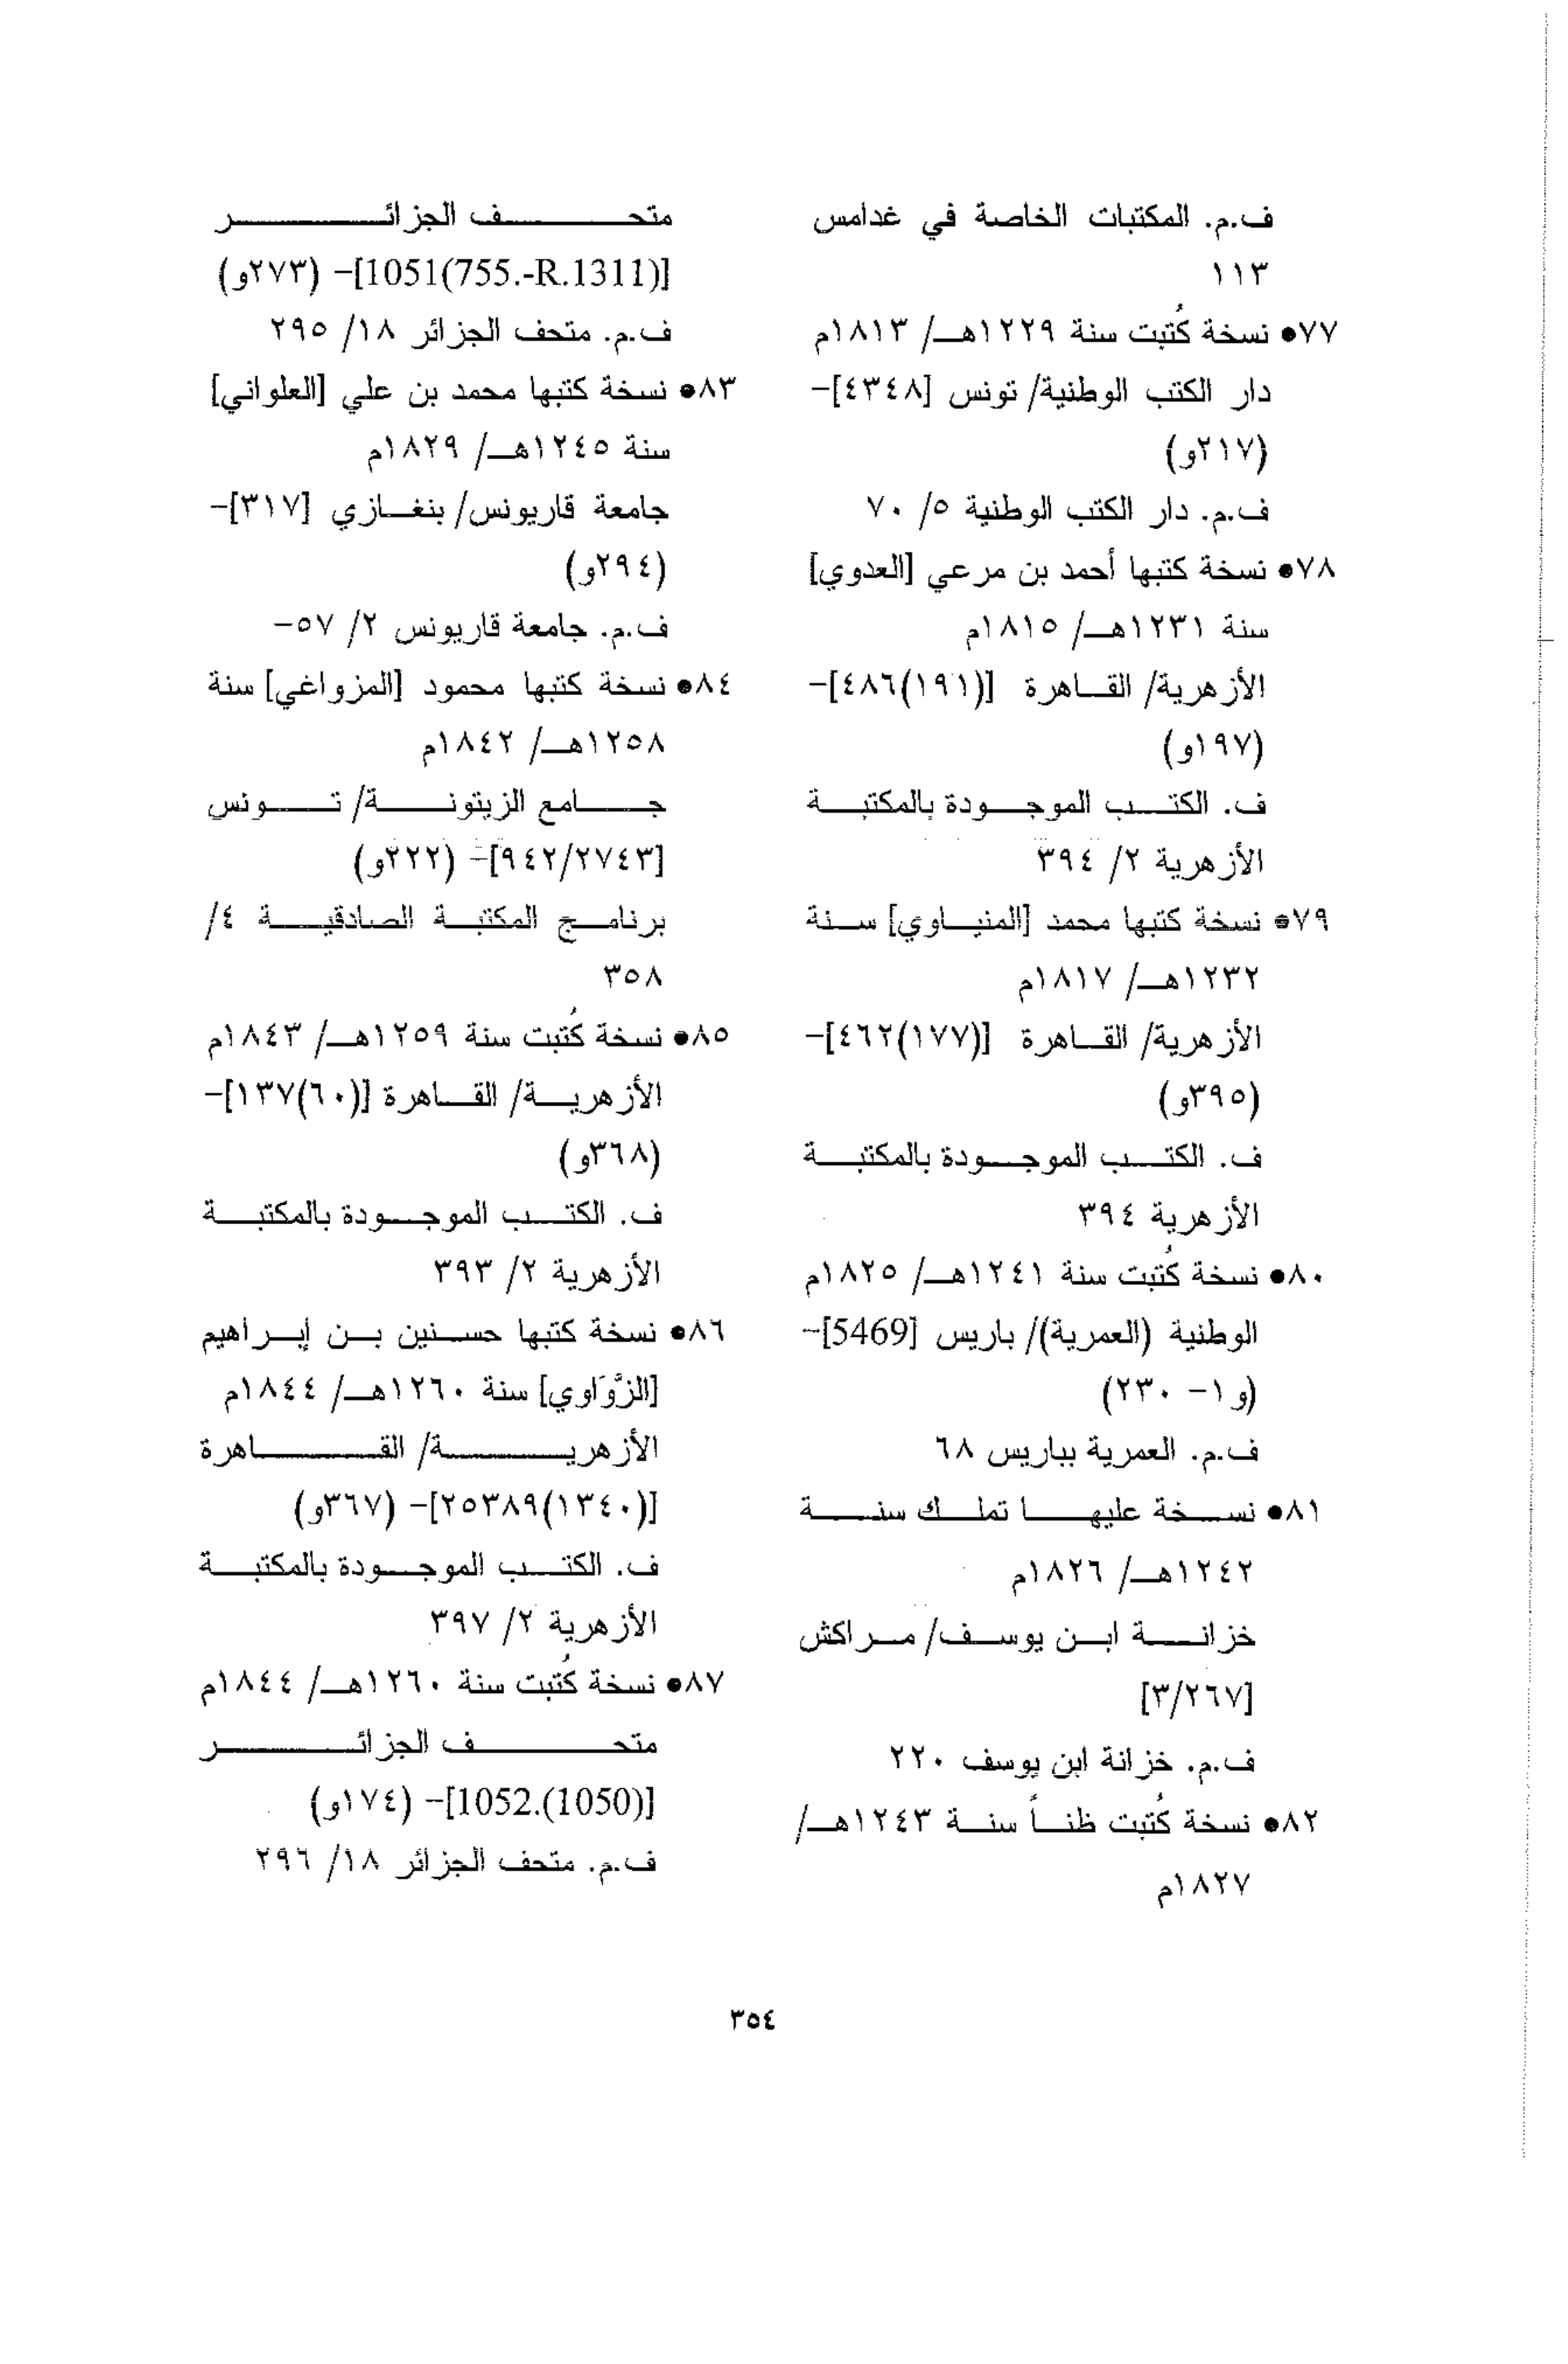 ف.م. المكتبات الخاصة في غدامس
١١٣
٧٧● نسخة كُتبت سنة ١٢٢٩هـ/ ١٨١٣م
دار الكتب الوطنية/ تونس [٤٣٤٨]-
(٢١٧و)
ف.م. دار الكتب الوطنية ٥/ ٧٠
٧٨● نسخة كتبها أحمد بن مرعي [العدوي]
سنة ١٢٣١هـ/ ١٨١٥م
الأزهرية/ القاهرة [(١٩١)٤٨٦]-
(١٩٧و)
ف. الكتب الموجودة بالمكتبة
الأزهرية ٢/ ٣٩٤
٧٩● نسخة كتبها محمد [المنياوي] سنة
١٢٣٢هـ/ ١٨١٧م
الأزهرية/ القاهرة [(١٧٧)٤٦٢]-
(٣٩٥و)
ف. الكتب الموجودة بالمكتبة
الأزهرية ٣٩٤
٨٠● نسخة كُتبت سنة ١٢٤١هـ/ ١٨٢٥م
الوطنية (العمرية)/ باريس [5469]-
(و١- ٢٣٠)
ف.م. العمرية بباريس ٦٨
٨١● نسخة عليها تملك سنة
١٢٤٢هـ/ ١٨٢٦م
خزانة ابن يوسف/ مراكش
[٣/٢٦٧]
ف.م. خزانة ابن يوسف ٢٢٠
٨٢● نسخة كُتبت ظناً سنة ١٢٤٣هـ/
١٨٢٧م
متحف الجزائر
[1051(755.-R.1311)]- (٢٧٣و)
ف.م. متحف الجزائر ١٨/ ٢٩٥
٨٣● نسخة كتبها محمد بن علي [العلواني]
سنة ١٢٤٥هـ/ ١٨٢٩م
جامعة قاريونس/ بنغازي [٣١٧]-
(٢٩٤و)
ف.م. جامعة قاريونس ٢/ ٥٧-
٨٤● نسخة كتبها محمود [المزواغي] سنة
١٢٥٨هـ/ ١٨٤٢م
جامع الزيتونة/ تونس
[٩٤٢/٢٧٤٣]- (٢٢٢و)
برنامج المكتبة الصادقية ٤/
٣٥٨
٨٥● نسخة كُتبت سنة ١٢٥٩هـ/ ١٨٤٣م
الأزهرية/ القاهرة [(٦٠)١٣٧]-
(٣٦٨و)
ف. الكتب الموجودة بالمكتبة
الأزهرية ٢/ ٣٩٣
٨٦● نسخة كتبها حسنين بن إبراهيم
[الزَّوَاوي] سنة ١٢٦٠هـ/ ١٨٤٤م
الأزهرية/ القاهرة
[(١٣٤٠)٢٥٣٨٩]- (٣٦٧و)
ف. الكتب الموجودة بالمكتبة
الأزهرية ٢/ ٣٩٧
٨٧● نسخة كُتبت سنة ١٢٦٠هـ/ ١٨٤٤م
متحف الجزائر
[1052.(1050)]- (١٧٤و)
ف.م. متحف الجزائر ١٨/ ٢٩٦
٣٥٤